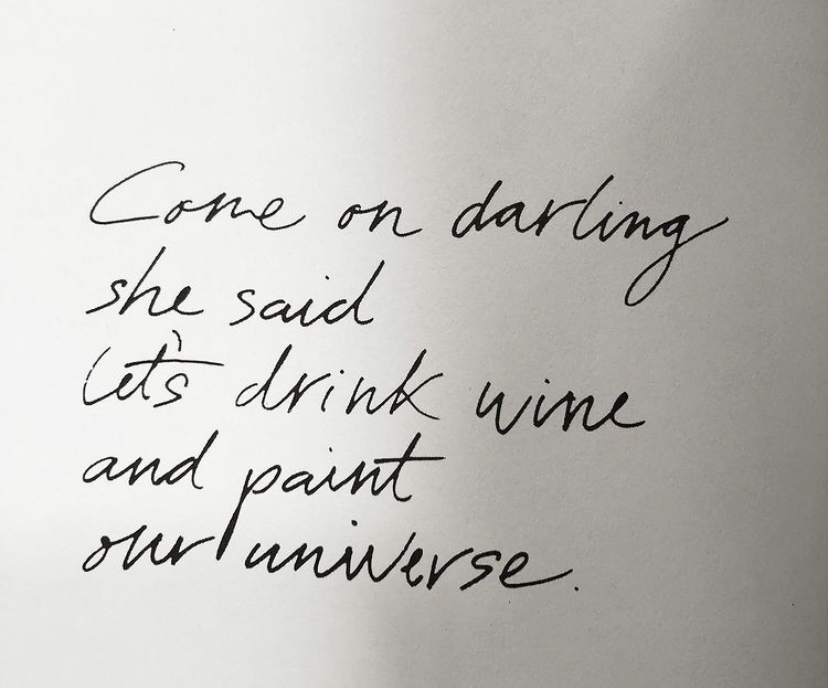 Come on darling
she said
let's drink wine
and paint
our universe.